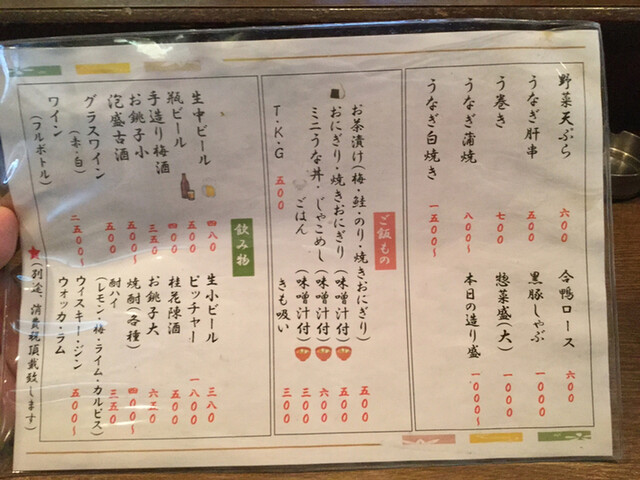 野菜天ぷら 六〇〇
うなぎ肝串 五〇〇
う巻き 七〇〇
うなぎ蒲焼 八〇〇〜
うなぎ白焼き 一五〇〇〜
合鴨ロース 六〇〇
黒豚しゃぶ 一〇〇〇
惣菜盛(大) 一〇〇〇
本日の造り盛 一〇〇〇〜
ご飯もの
お茶漬け(梅・鮭・のり・焼きおにぎり) 五〇〇
おにぎり・焼きおにぎり(味噌汁付) 五〇〇
ミニうな丼・じゃこめし(味噌汁付) 六〇〇
ごはん(味噌汁付) 三〇〇
T・K・G 五〇〇
きも吸い 三〇〇
飲み物
生中ビール 四八〇
瓶ビール 五〇〇
手造り梅酒 四〇〇
お銚子小 三五〇
泡盛古酒 五〇〇〜
グラスワイン 五〇〇〜
(赤・白)
ワイン 二五〇〇〜
(フルボトル)
生小ビール 三八〇
ピッチャー 一八〇〇
桂花陳酒 五〇〇
お銚子大 六五〇
焼酎(各種) 四〇〇〜
酎ハイ 三五〇
(レモン・梅・ライム・カルピス)
ウイスキー・ジン 五〇〇〜
ウォッカ・ラム
★別途、消費税頂戴致します)